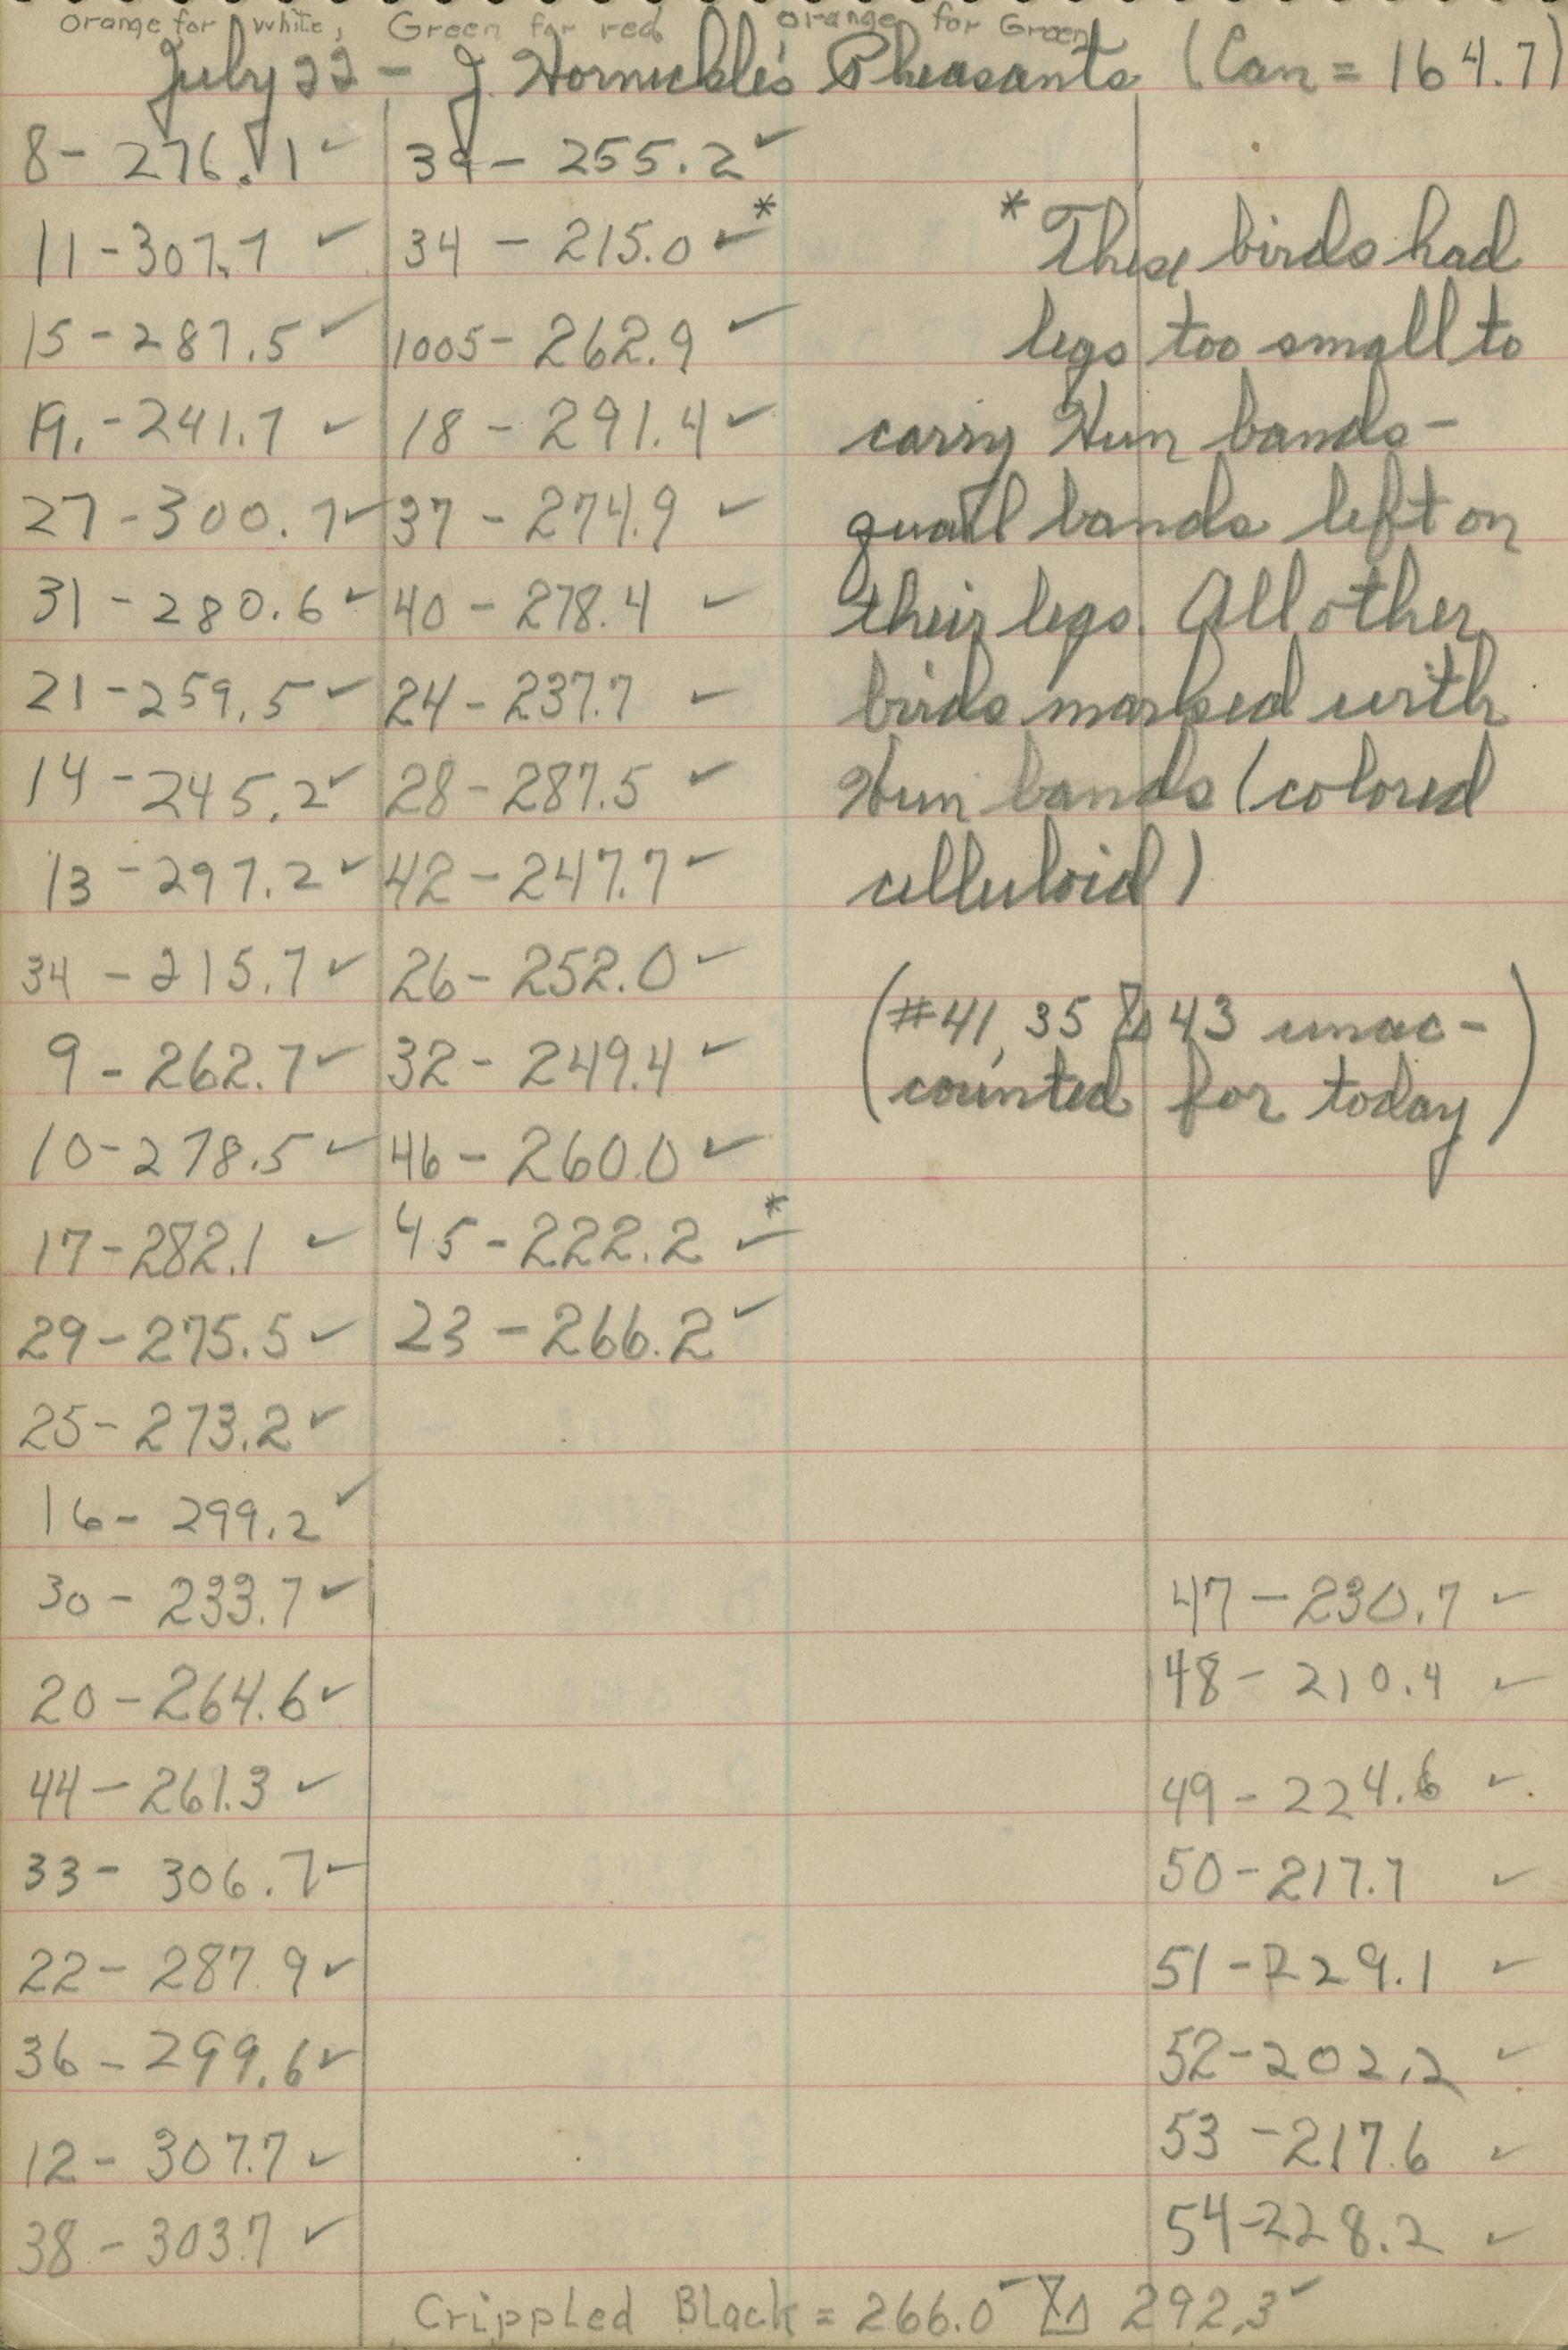 Orange for white, Green for red Orange for Green
July 22 - J. Hornickle's Pheasants (Can = 164.7)
8 - 276.1 ✓
11 - 307.7 ✓
15 - 287.5 ✓
19. - 241.7 ✓
27 - 300.7 ✓
31 - 280.6 ✓
21 - 259.5 ✓
14 - 245.2 ✓
13 - 297.2 ✓
34 - 215.7 ✓
9 - 262.7 ✓
10 - 278.5 ✓
17 - 282.1 ✓
29 - 275.5 ✓
25 - 273.2 ✓
16 - 299.2 ✓
30 - 233.7 ✓
20 - 264.6 ✓
44 - 261.3 ✓
33 - 306.7 ✓
22 - 287.9 ✓
36 - 299.6 ✓
12 - 307.7 ✓
38 - 303.7 ✓
39 - 255.2 ✓
34 - 215.0 ✓*
1005 - 262.9 ✓
18 - 291.4 ✓
37 - 274.9 ✓
40 - 278.4 ✓
24 - 237.7 ✓
28 - 287.5 ✓
42 - 247.7 ✓
26 - 252.0 ✓
32 - 249.4 ✓
46 - 260.0 ✓
45 - 222.2 ✓*
23 - 266.2 ✓
* These birds had
legs too small to
carry Hun bands -
quail bands left on
their legs. All other
birds marked with
Hun bands (colored
celluloid)
(#41, 35 & 43 unac-
counted for today)
47 - 230.7 ✓
48 - 210.4 ✓
49 - 224.6 ✓
50 - 217.7 ✓
51 - 229.1 ✓
52 - 202.2 ✓
53 - 217.6 ✓
54 - 228.2 ✓
Crippled Black = 266.0 ✓ & 292.3 ✓